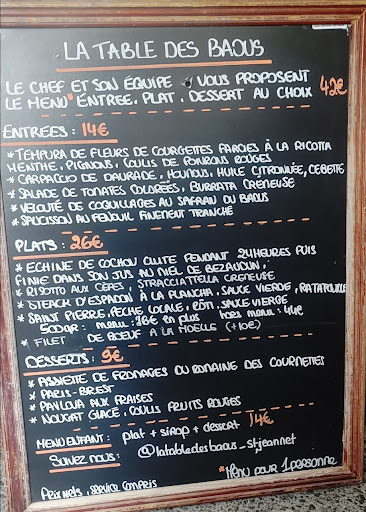 LA TABLE DES BAOUS
LE CHEF ET SON ÉQUIPE VOUS PROPOSENT
LE MENU* ENTREE, PLAT, DESSERT AU CHOIX 42€
ENTRÉES : 14€
* TEMPURA DE FLEURS DE COURGETTES FARCIES À LA RICOTTA
MENTHE, PIGNONS, COULIS DE POIVRONS ROUGES
* CARPACCIO DE DAURADE, HOUMOUS, HUILE CITRONNÉE, CEBETTE
* SALADE DE TOMATES COLORÉES, BURRATA CRÉMEUSE
* VELOUTÉ DE COQUILLAGES AU SAFRAN DU BAOU
* SAUCISSON AU FENOUIL FINEMENT TRANCHÉ
PLATS : 26€
* ECHINE DE COCHON CUITE PENDANT 24HEURES PUIS
FINIE DANS SON JUS AU MIEL DE BEZAUDUN,
* RISOTTO AUX CÈPES, STRACCIATELLA CREMEUSE
* STEACK D'ESPADON À LA PLANCHA, SAUCE VIERGE, RATATOUILLE
* SAINT PIERRE, PÊCHE LOCALE, RÔTI, SAUCE VIERGE
500gr : menu : 18€ en plus hors menu : 44€
* FILET DE BOEUF À LA MOELLE (+10€)
DESSERTS : 9€
* ASSIETTE DE FROMAGES DU DOMAINE DES COURMETTES
* PARIS-BREST
* PAVLOVA AUX FRAISES
* NOUGAT GLACÉ, COULIS FRUITS ROUGES
MENU ENFANT : plat + sirop + dessert 14€
SUIVEZ NOUS : @latabledesbaous_stjeannet
*MENU POUR 1 personne
Prix nets, service compris